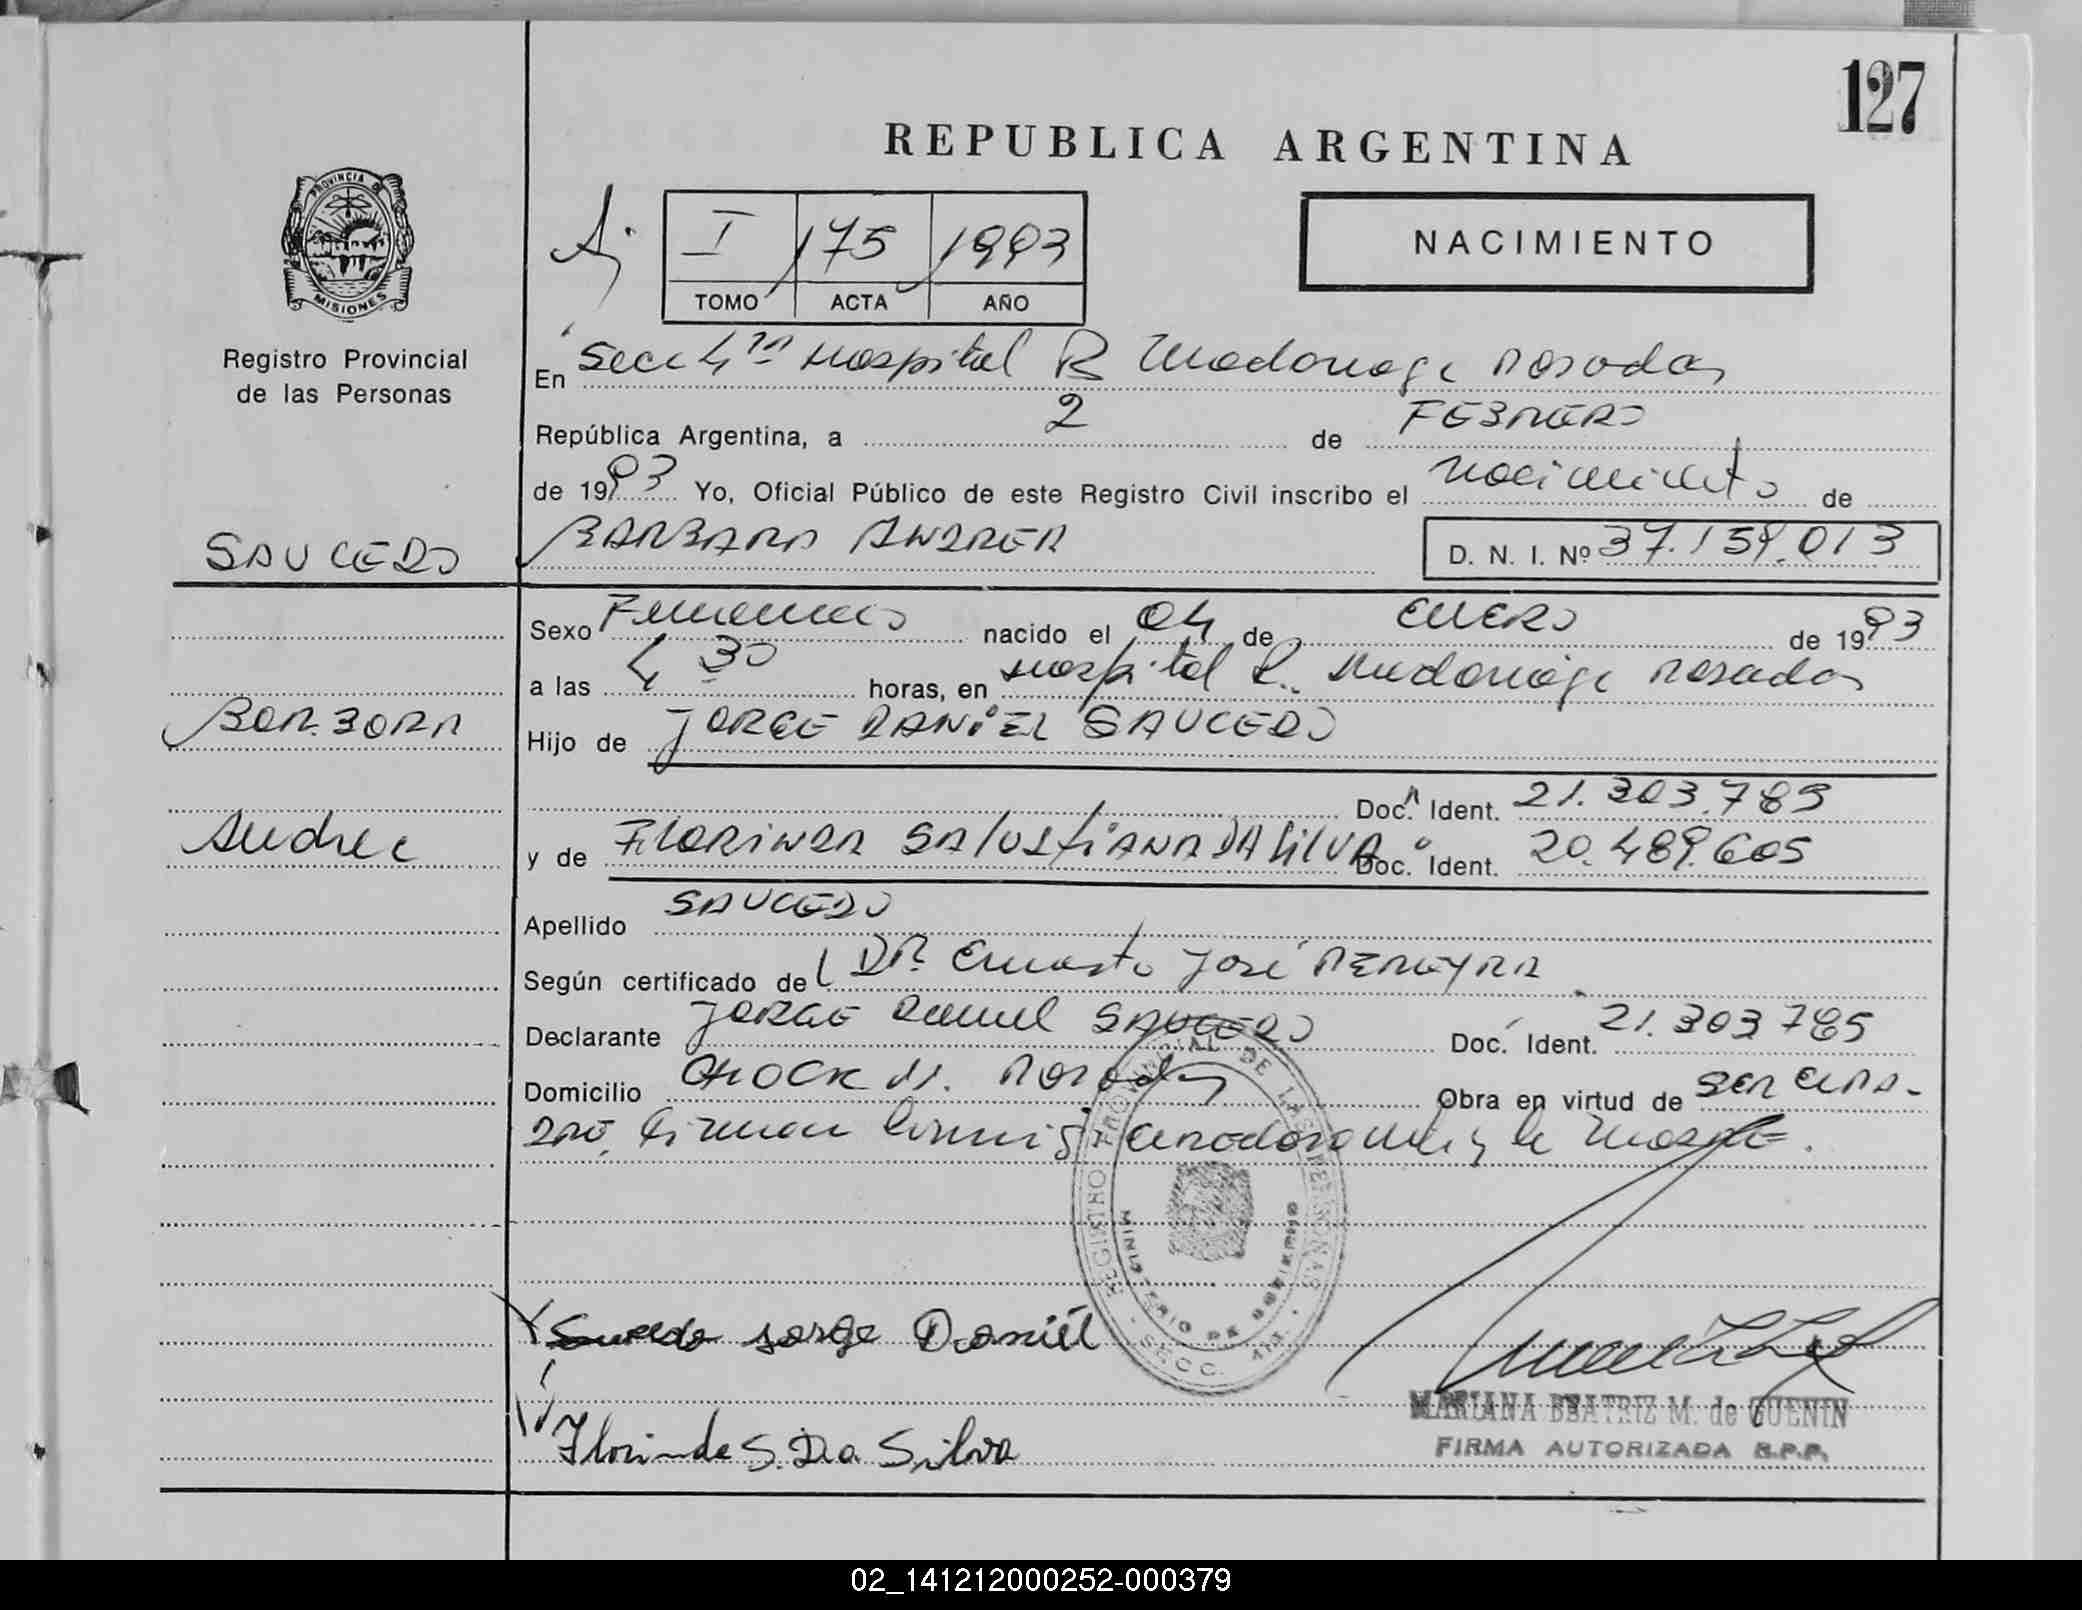 127
REPUBLICA ARGENTINA
PROVINCIA DE
MISIONES
I 175 1993
TOMO ACTA AÑO
NACIMIENTO
Registro Provincial
de las Personas
En Secc 4ta Hospital R Madariaga Posadas
República Argentina, a 2 de FEBRERO
de 1993 Yo, Oficial Público de este Registro Civil inscribo el nacimiento de
SAUCEDO
BARBARA ANDREA
D. N. I. Nº 37.159.013
Sexo Femenino nacido el 04 de ENERO de 1993
a las 4 30 horas, en Hospital R. Madariaga Posadas
BARBARA
Hijo de JORGE DANIEL SAUCEDO
Doc. Ident. 21.303.785
Andrea
y de FLORINDA SALUSTIANA DA SILVA Doc. Ident. 20.489.605
Apellido SAUCEDO
Según certificado de DR. Ernesto José PEREYRA
Declarante JORGE Daniel SAUCEDO Doc. Ident. 21.303 785
Domicilio CHACK Posadas Obra en virtud de SER EL PA-
DRE, firman
REGISTRO PROVINCIAL DE LAS PERSONAS
MINISTERIO DE GOBIERNO
SECC. 4ta
Saucedo Jorge Daniel
Florinda S. Da Silva
MARIANA BEATRIZ M. de GUENIN
FIRMA AUTORIZADA R.P.P.
02_141212000252-000379